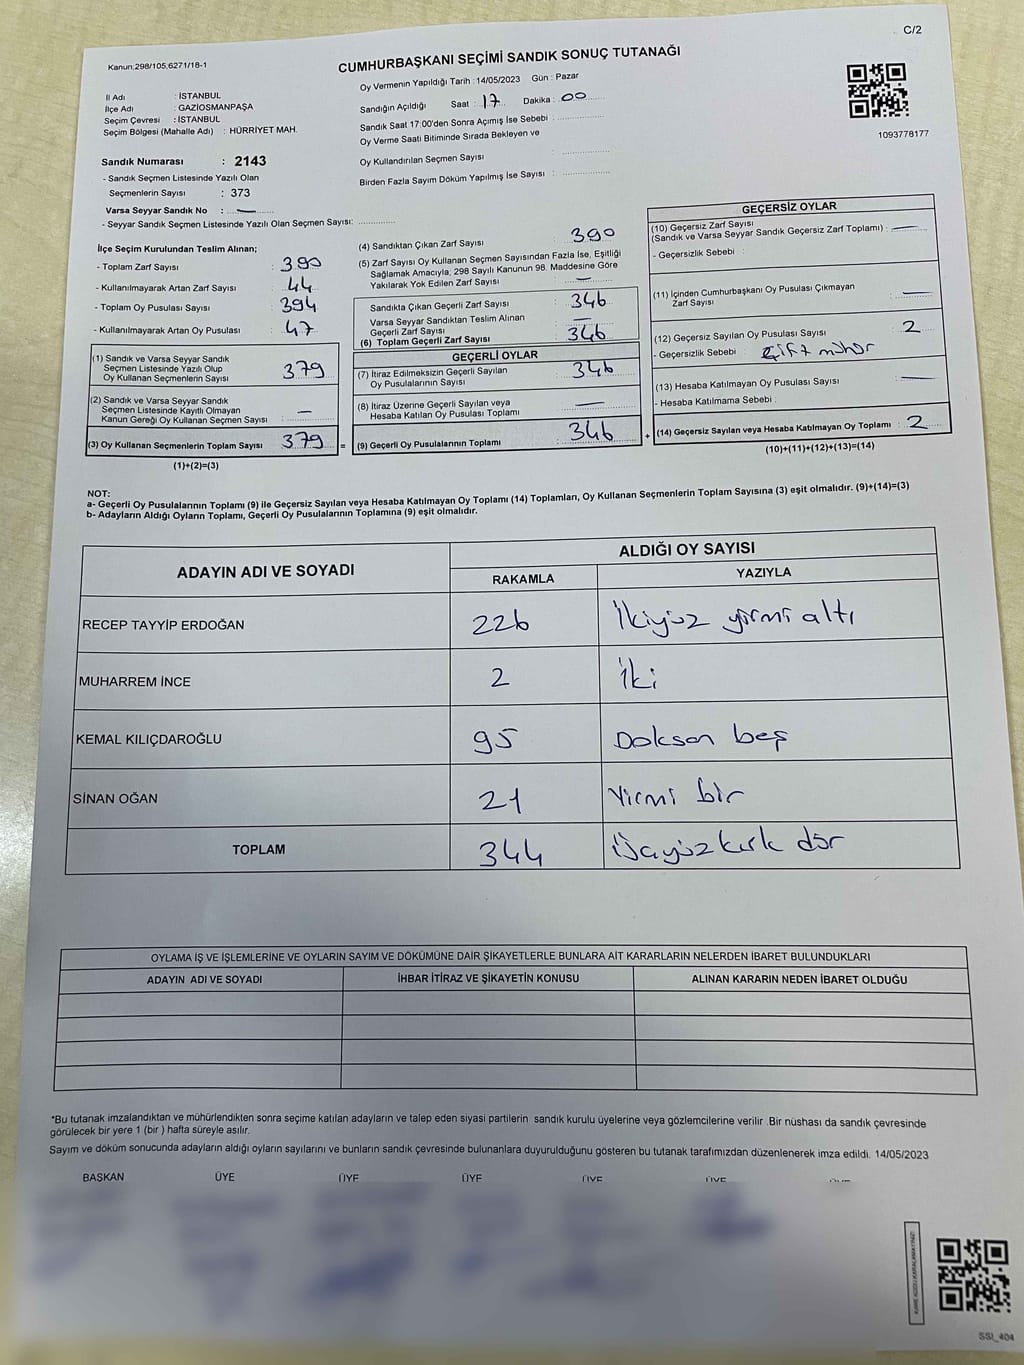 C/2
Kanun:298/105,6271/18-1
CUMHURBAŞKANI SEÇİMİ SANDIK SONUÇ TUTANAĞI
İl Adı : İSTANBUL
İlçe Adı : GAZİOSMANPAŞA
Seçim Çevresi : İSTANBUL
Seçim Bölgesi (Mahalle Adı) : HÜRRİYET MAH.
Sandık Numarası : 2143
- Sandık Seçmen Listesinde Yazılı Olan
Seçmenlerin Sayısı : 373
Varsa Seyyar Sandık No : —
- Seyyar Sandık Seçmen Listesinde Yazılı Olan Seçmen Sayısı:
Oy Vermenin Yapıldığı Tarih : 14/05/2023 Gün : Pazar
Sandığın Açıldığı Saat : 17 Dakika : 00
Sandık Saat 17:00'den Sonra Açımış İse Sebebi :
Oy Verme Saati Bitiminde Sırada Bekleyen ve
Oy Kullandırılan Seçmen Sayısı :
Birden Fazla Sayım Döküm Yapılmış İse Sayısı :
1093778177
İlçe Seçim Kurulundan Teslim Alınan;
- Toplam Zarf Sayısı : 390
- Kullanılmayarak Artan Zarf Sayısı : 44
- Toplam Oy Pusulası Sayısı : 394
- Kullanılmayarak Artan Oy Pusulası : 47
(1) Sandık ve Varsa Seyyar Sandık
Seçmen Listesinde Yazılı Olup
Oy Kullanan Seçmenlerin Sayısı : 379
(2) Sandık ve Varsa Seyyar Sandık
Seçmen Listesinde Kayıtlı Olmayan
Kanun Gereği Oy Kullanan Seçmen Sayısı : —
(3) Oy Kullanan Seçmenlerin Toplam Sayısı : 379 =
(1)+(2)=(3)
(4) Sandıktan Çıkan Zarf Sayısı : 390
(5) Zarf Sayısı Oy Kullanan Seçmen Sayısından Fazla İse, Eşitliği
Sağlamak Amacıyla, 298 Sayılı Kanunun 98. Maddesine Göre
Yakılarak Yok Edilen Zarf Sayısı : —
Sandıkta Çıkan Geçerli Zarf Sayısı : 346
Varsa Seyyar Sandıktan Teslim Alınan
Geçerli Zarf Sayısı : —
(6) Toplam Geçerli Zarf Sayısı : 346
GEÇERLİ OYLAR
(7) İtiraz Edilmeksizin Geçerli Sayılan
Oy Pusulalarının Sayısı : 346
(8) İtiraz Üzerine Geçerli Sayılan veya
Hesaba Katılan Oy Pusulası Toplamı : —
(9) Geçerli Oy Pusulalarının Toplamı : 346 +
GEÇERSİZ OYLAR
(10) Geçersiz Zarf Sayısı
(Sandık ve Varsa Seyyar Sandık Geçersiz Zarf Toplamı) : —
- Geçersizlik Sebebi :
(11) İçinden Cumhurbaşkanı Oy Pusulası Çıkmayan
Zarf Sayısı : —
(12) Geçersiz Sayılan Oy Pusulası Sayısı : 2
- Geçersizlik Sebebi : Çift mühür
(13) Hesaba Katılmayan Oy Pusulası Sayısı : —
- Hesaba Katılmama Sebebi :
(14) Geçersiz Sayılan veya Hesaba Katılmayan Oy Toplamı : 2
(10)+(11)+(12)+(13)=(14)
NOT:
a- Geçerli Oy Pusulalarının Toplamı (9) ile Geçersiz Sayılan veya Hesaba Katılmayan Oy Toplamı (14) Toplamları, Oy Kullanan Seçmenlerin Toplam Sayısına (3) eşit olmalıdır. (9)+(14)=(3)
b- Adayların Aldığı Oyların Toplamı, Geçerli Oy Pusulalarının Toplamına (9) eşit olmalıdır.
ADAYIN ADI VE SOYADI
ALDIĞI OY SAYISI
RAKAMLA YAZIYLA
RECEP TAYYİP ERDOĞAN 226 İkiyüz yirmi altı
MUHARREM İNCE 2 İki
KEMAL KILIÇDAROĞLU 95 Doksan beş
SİNAN OĞAN 21 Yirmi bir
TOPLAM 344 kırk dör
OYLAMA İŞ VE İŞLEMLERİNE VE OYLARIN SAYIM VE DÖKÜMÜNE DAİR ŞİKAYETLERLE BUNLARA AİT KARARLARIN NELERDEN İBARET BULUNDUKLARI
ADAYIN ADI VE SOYADI İHBAR İTİRAZ VE ŞİKAYETİN KONUSU ALINAN KARARIN NEDEN İBARET OLDUĞU
*Bu tutanak imzalandıktan ve mühürlendikten sonra seçime katılan adayların ve talep eden siyasi partilerin sandık kurulu üyelerine veya gözlemcilerine verilir .Bir nüshası da sandık çevresinde
görülecek bir yere 1 (bir ) hafta süreyle asılır.
Sayım ve döküm sonucunda adayların aldığı oyların sayılarını ve bunların sandık çevresinde bulunanlara duyurulduğunu gösteren bu tutanak tarafımızdan düzenlenerek imza edildi. 14/05/2023
BAŞKAN ÜYE ÜYE ÜYE ÜYE ÜYE
SSI_404